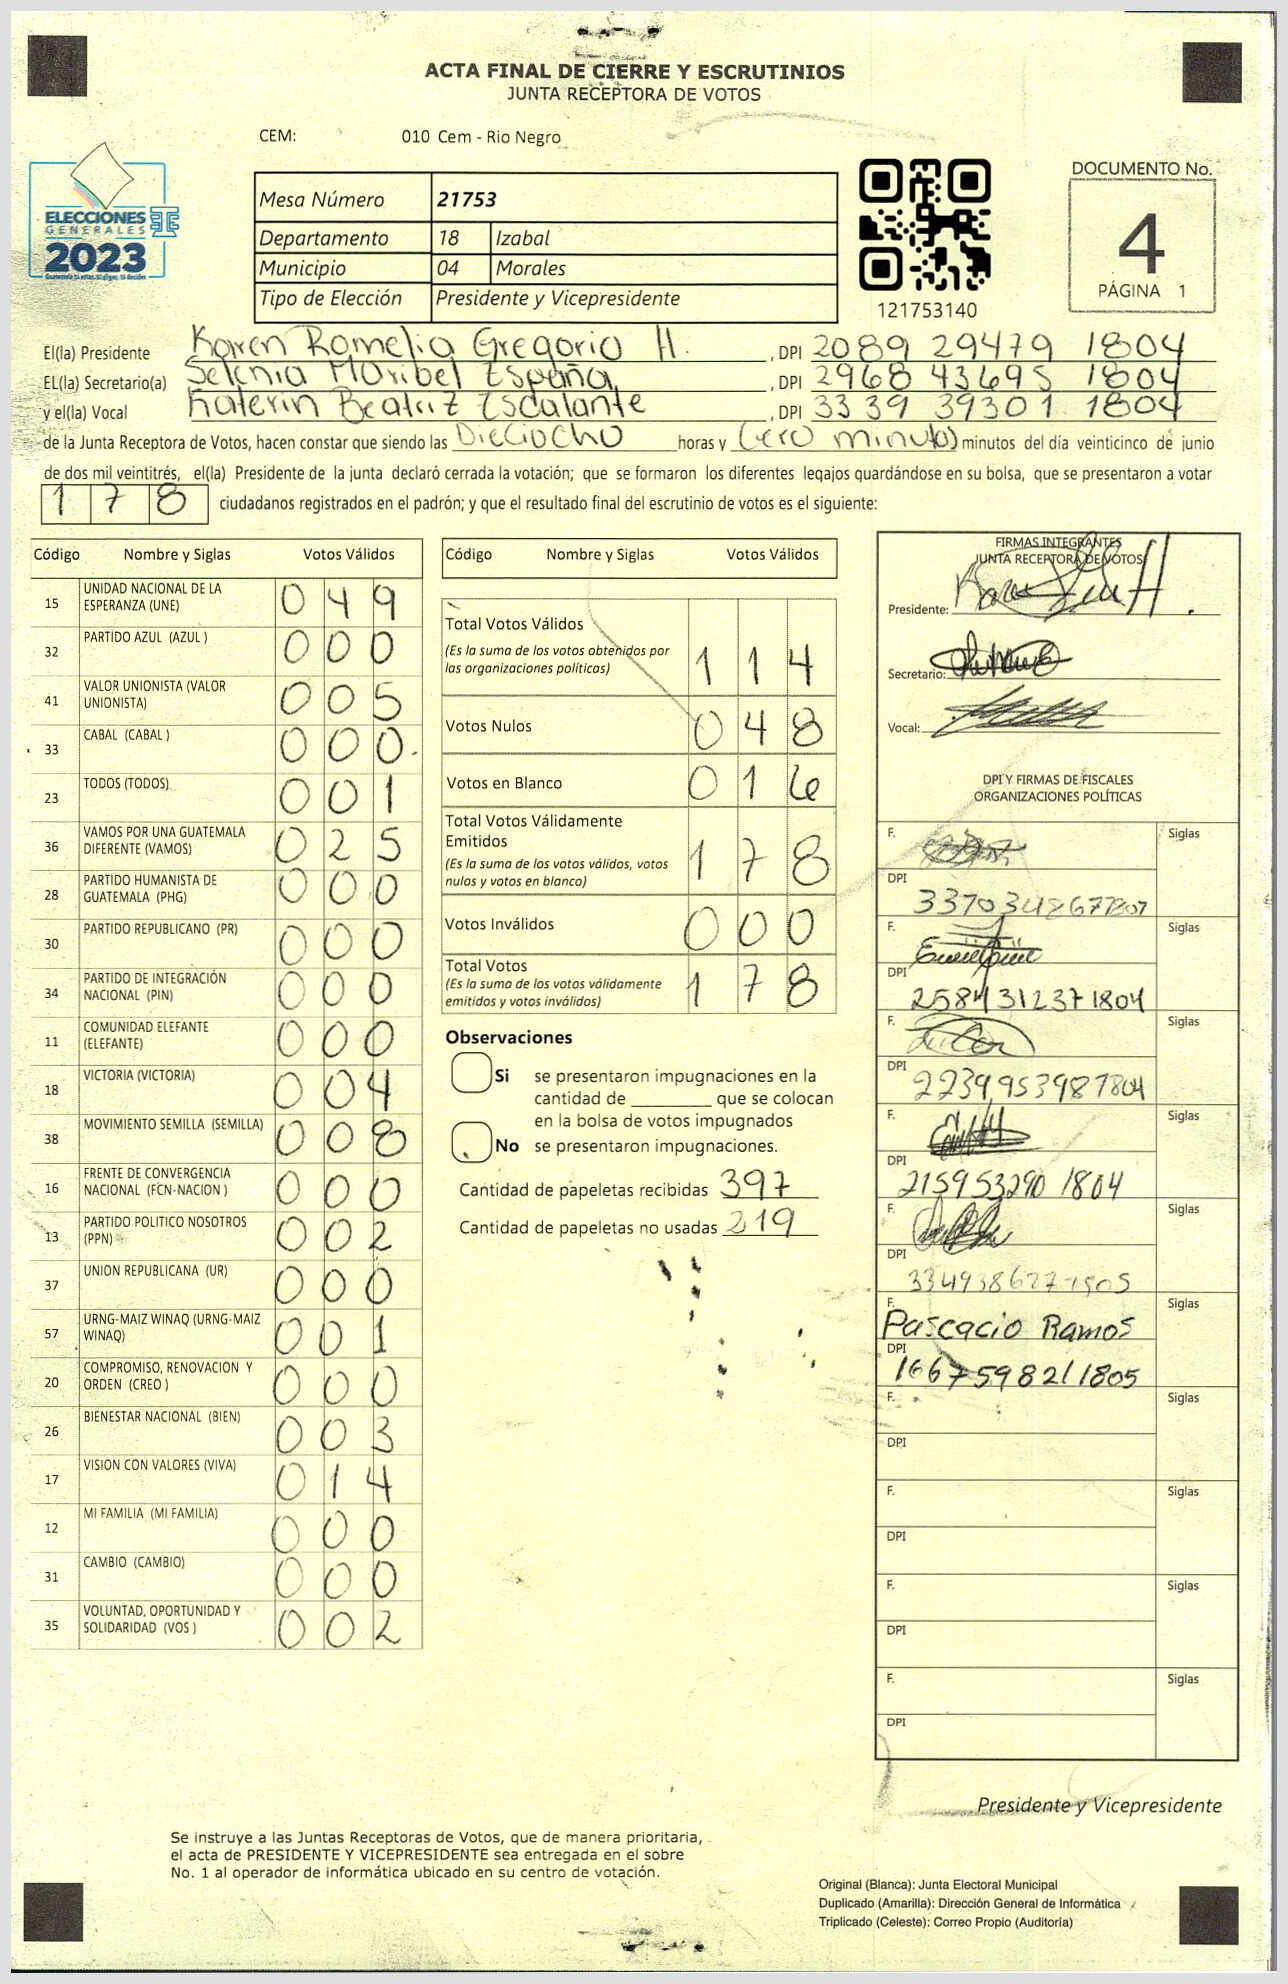 ACTA FINAL DE CIERRE Y ESCRUTINIOS
JUNTA RECEPTORA DE VOTOS
CEM: 010 Cem - Rio Negro
ELECCIONES
GENERALES
2023
Mesa Número 21753
Departamento 18 Izabal
Municipio 04 Morales
Tipo de Elección Presidente y Vicepresidente
121753140
DOCUMENTO No.
4
PÁGINA 1
El(la) Presidente Karen Romelia Gregorio H. , DPI 2089 29479 1804
EL(la) Secretario(a) Selenia Maribel España , DPI 2968 43695 1804
y el(la) Vocal Katerin Beatriz Escalante , DPI 3339 39301 1804
de la Junta Receptora de Votos, hacen constar que siendo las Dieciocho horas y Cero minutos minutos del día veinticinco de junio
de dos mil veintitrés, el(la) Presidente de la junta declaró cerrada la votación; que se formaron los diferentes legajos guardándose en su bolsa, que se presentaron a votar
178 ciudadanos registrados en el padrón; y que el resultado final del escrutinio de votos es el siguiente:
Código Nombre y Siglas Votos Válidos
15 UNIDAD NACIONAL DE LA ESPERANZA (UNE) 049
32 PARTIDO AZUL (AZUL ) 000
41 VALOR UNIONISTA (VALOR UNIONISTA) 005
33 CABAL (CABAL ) 000
23 TODOS (TODOS) 001
36 VAMOS POR UNA GUATEMALA DIFERENTE (VAMOS) 025
28 PARTIDO HUMANISTA DE GUATEMALA (PHG) 000
30 PARTIDO REPUBLICANO (PR) 000
34 PARTIDO DE INTEGRACIÓN NACIONAL (PIN) 000
11 COMUNIDAD ELEFANTE (ELEFANTE) 000
18 VICTORIA (VICTORIA) 004
38 MOVIMIENTO SEMILLA (SEMILLA) 008
16 FRENTE DE CONVERGENCIA NACIONAL (FCN-NACION ) 000
13 PARTIDO POLITICO NOSOTROS (PPN) 002
37 UNION REPUBLICANA (UR) 000
57 URNG-MAIZ WINAQ (URNG-MAIZ WINAQ) 001
20 COMPROMISO, RENOVACION Y ORDEN (CREO ) 000
26 BIENESTAR NACIONAL (BIEN) 003
17 VISION CON VALORES (VIVA) 014
12 MI FAMILIA (MI FAMILIA) 000
31 CAMBIO (CAMBIO) 000
35 VOLUNTAD, OPORTUNIDAD Y SOLIDARIDAD (VOS ) 002
Código Nombre y Siglas Votos Válidos
Total Votos Válidos 114
(Es la suma de los votos obtenidos por
las organizaciones políticas)
Votos Nulos 048
Votos en Blanco 016
Total Votos Válidamente
Emitidos 178
(Es la suma de los votos válidos, votos
nulos y votos en blanco)
Votos Inválidos 000
Total Votos 178
(Es la suma de los votos válidamente
emitidos y votos inválidos)
Observaciones
Si se presentaron impugnaciones en la
cantidad de ________ que se colocan
en la bolsa de votos impugnados
No se presentaron impugnaciones.
Cantidad de papeletas recibidas 397
Cantidad de papeletas no usadas 219
FIRMAS INTEGRANTES
JUNTA RECEPTORA DE VOTOS
Presidente:
Secretario:
Vocal:
DPI Y FIRMAS DE FISCALES
ORGANIZACIONES POLÍTICAS
F. Siglas
DPI
F. Siglas
DPI 2584312371804
F. Siglas
DPI 2239953987804
F. Siglas
DPI 215953290 1804
F. Siglas
DPI
F. Pascacio Ramos Siglas
DPI 1667598211805
F. Siglas
DPI
F. Siglas
DPI
F. Siglas
DPI
F. Siglas
DPI
Presidente y Vicepresidente
Se instruye a las Juntas Receptoras de Votos, que de manera prioritaria,
el acta de PRESIDENTE Y VICEPRESIDENTE sea entregada en el sobre
No. 1 al operador de informática ubicado en su centro de votación.
Original (Blanca): Junta Electoral Municipal
Duplicado (Amarilla): Dirección General de Informática
Triplicado (Celeste): Correo Propio (Auditoría)